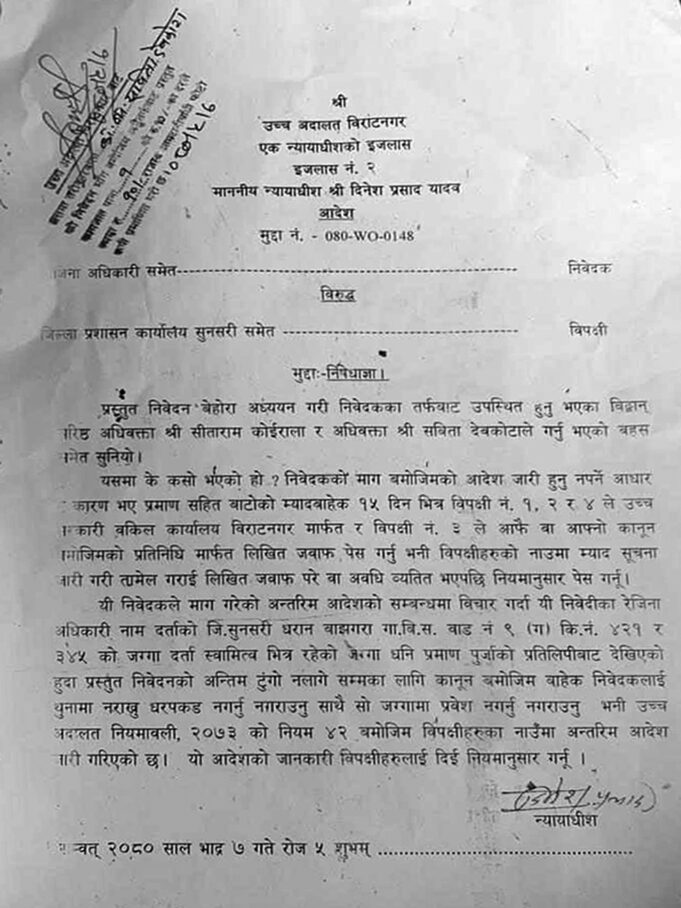 श्री
उच्च अदालत विराटनगर
एक न्यायाधीशको इजलास
इजलास नं. २
माननीय न्यायाधीश श्री दिनेश प्रसाद यादव
आदेश
मुद्दा नं. - 080-WO-0148
जिना अधिकारी समेत-------------------------------------------------- निवेदक
विरुद्ध
जिल्ला प्रशासन कार्यालय सुनसरी समेत ----------------------------------- विपक्षी
मुद्दाः-निषेधाज्ञा।
प्रस्तुत निवेदन बेहोरा अध्ययन गरी निवेदकका तर्फबाट उपस्थित हुनु भएका विद्वान्
रिष्ठ अधिवक्ता श्री सीताराम कोईराला र अधिवक्ता श्री सबिता देवकोटाले गर्नु भएको बहस
मेत सुनियो।
यसमा के कसो भएको हो ? निवेदकको माग बमोजिमको आदेश जारी हुनु नपर्ने आधार
कारण भए प्रमाण सहित बाटोको म्यादबाहेक १५ दिन भित्र विपक्षी नं. १, २ र ४ ले उच्च
कारी वकिल कार्यालय विराटनगर मार्फत र विपक्षी नं. ३ ले आफै वा आफ्नो कानून
मोजिमको प्रतिनिधि मार्फत लिखित जवाफ पेस गर्नु भनी विपक्षीहरुको नाउमा म्याद सूचना
जारी गरी तामेल गराई लिखित जवाफ परे वा अवधि व्यतित भएपछि नियमानुसार पेस गर्नू।
यी निवेदकले माग गरेको अन्तरिम आदेशको सम्बन्धमा विचार गर्दा यी निवेदीका रेजिना
अधिकारी नाम दर्ताको जि.सुनसरी धरान बाझगरा गा.वि.स. वाड नं ९ (ग) कि.नं. ४२१ र
३४५ को जग्गा दर्ता स्वामित्व भित्र रहेको जग्गा धनि प्रमाण पुर्जाको प्रतिलिपीबाट देखिएको
हुदा प्रस्तुत निवेदनको अन्तिम टुंगो नलागे सम्मका लागि कानून बमोजिम वाहेक निवेदकलाई
थुनामा नराख्नु धरपकड नगर्नु नगराउनु साथै सो जग्गामा प्रवेश नगर्नु नगराउनु भनी उच्च
अदालत नियमावली, २०७३ को नियम ४२ बमोजिम विपक्षीहरुका नाउँमा अन्तरिम आदेश
जारी गरिएको छ। यो आदेशको जानकारी विपक्षीहरुलाई दिई नियमानुसार गर्नू ।
न्यायाधीश
वत् २०८० साल भाद्र ७ गते रोज ५ शुभम् ........................................